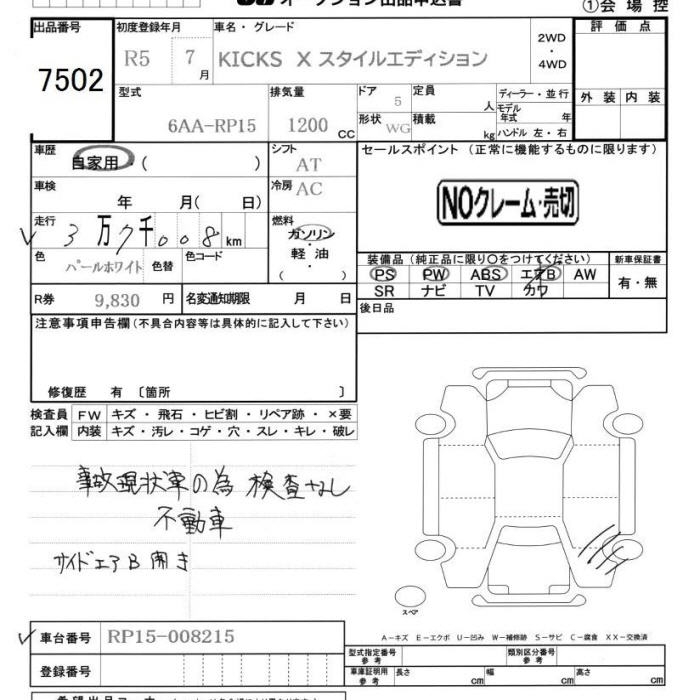 オークション出品申込書
①会場控
出品番号 初度登録年月 車名・グレード 評価点
7502 R5 7月 KICKS X スタイルエディション 2WD・4WD
型式 排気量 ドア 定員 ディーラー・並行 外装 内装
6AA-RP15 1200 CC 5 人 モデル年式 年
形状 WG 積載 kg ハンドル 左・右
車歴 シフト セールスポイント (正常に機能するものに限ります)
自家用・( ) AT
車検 冷房 AC
年 月( 日) NOクレーム・売切
走行 燃料
3万7千008km ガソリン・軽油・( )
色 色替 色コード 装備品 (純正品に限り○をつけてください) 新車保証書
パールホワイト PS PW ABS エアB AW 有・無
SR ナビ TV カワ
R券 9,830 円 名変通知期限 月 日 後日品
注意事項申告欄(不具合内容等は具体的に記入して下さい)
修復歴 有 〔箇所 〕
検査員 FW キズ・飛石・ヒビ割・リペア跡・×要
記入欄 内装 キズ・汚レ・コゲ・穴・スレ・キレ・破レ
事故現状車の為 検査なし
不動車
サイドエアB開き
スペア
A-キズ E-エクボ U-凹み W-補修跡 S-サビ C-腐食 XX-交換済
車台番号 RP15-008215
型式指定番号 参考 類別区分番号 参考
登録番号 車庫証明用 参考 長さ cm 幅 cm 高さ cm